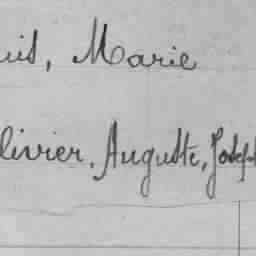 uis, Marie
livier, Auguste, Joseph